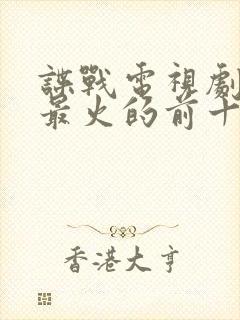 諜戰電視劇
最火的前十
香港大亨